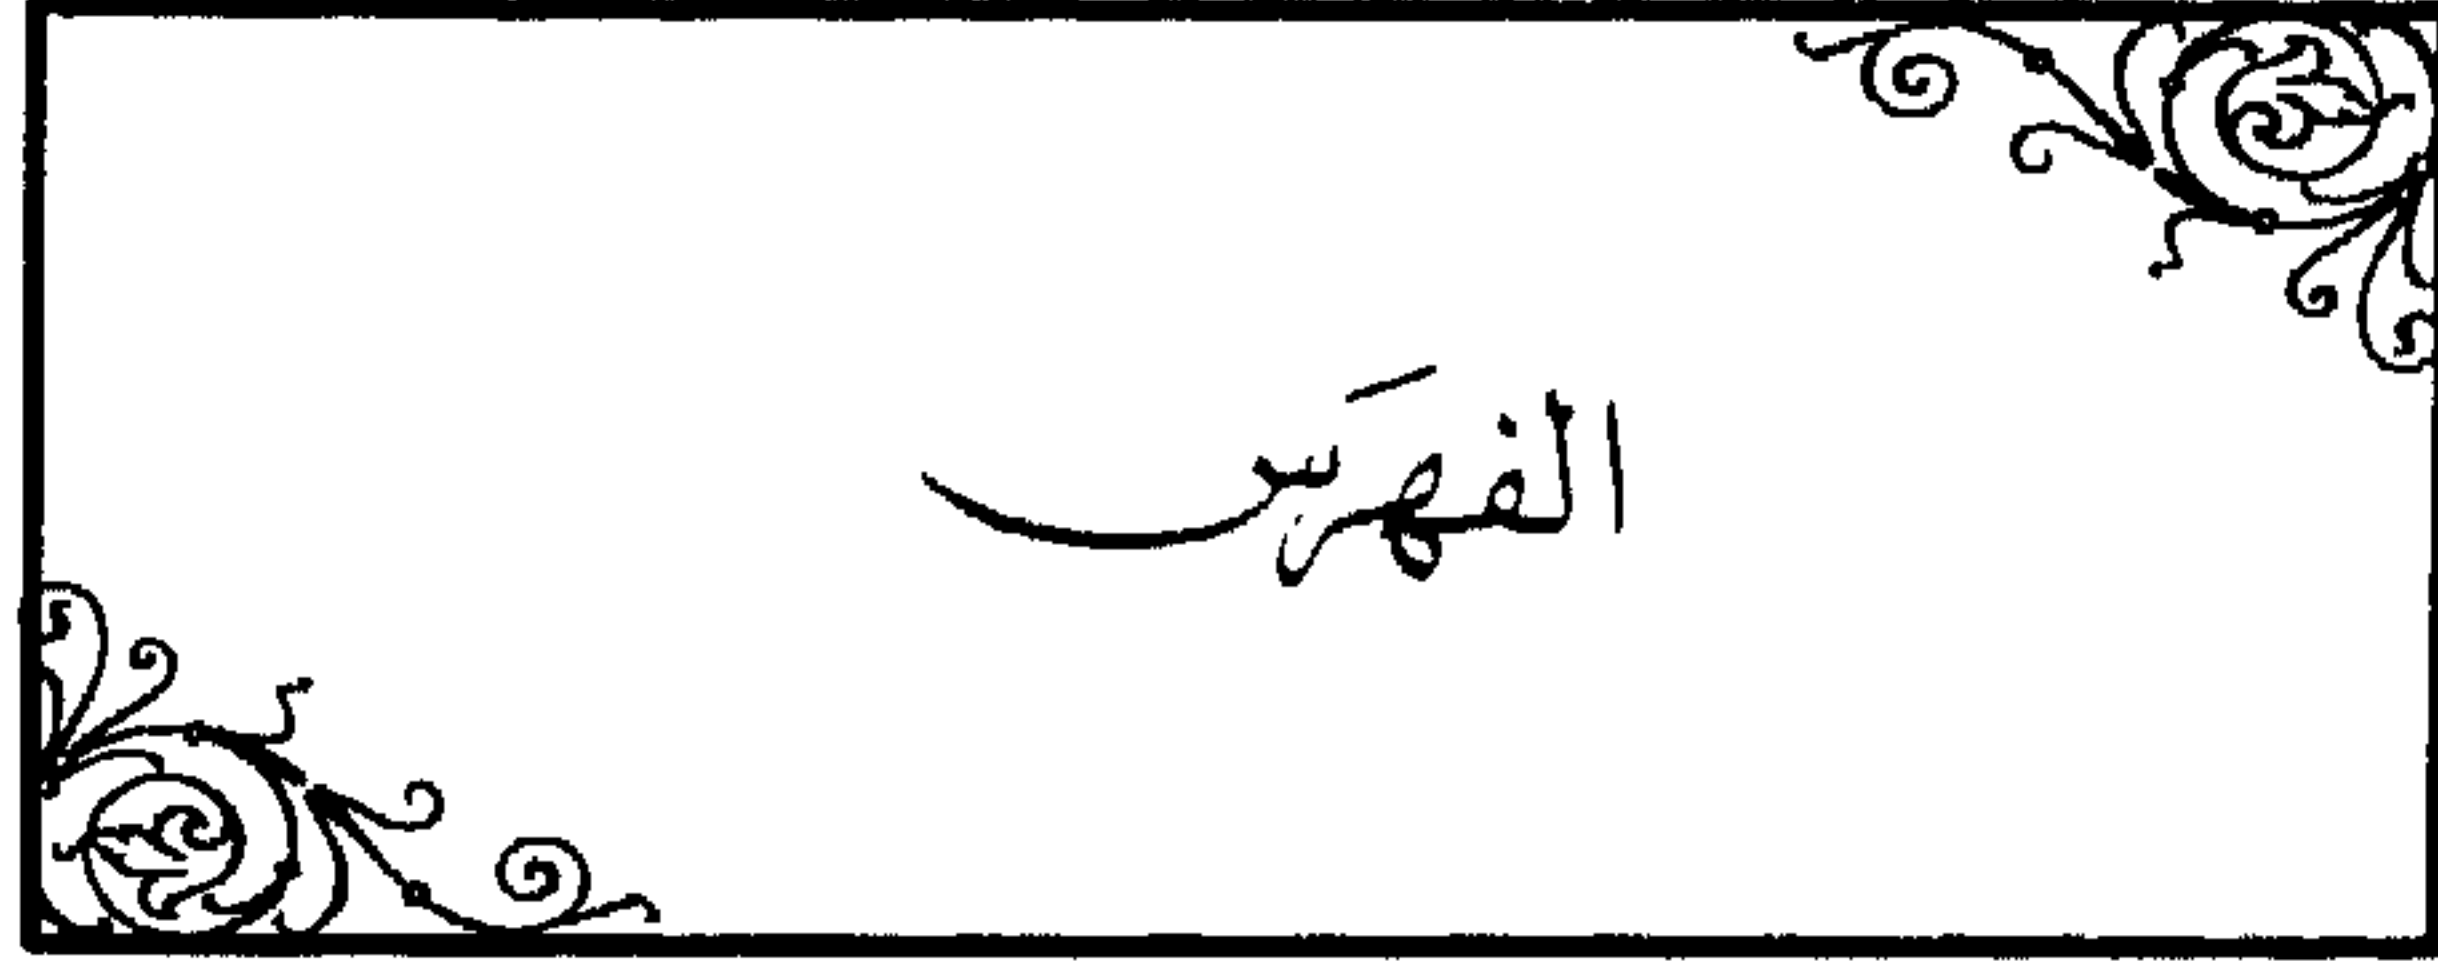 الفهرَس